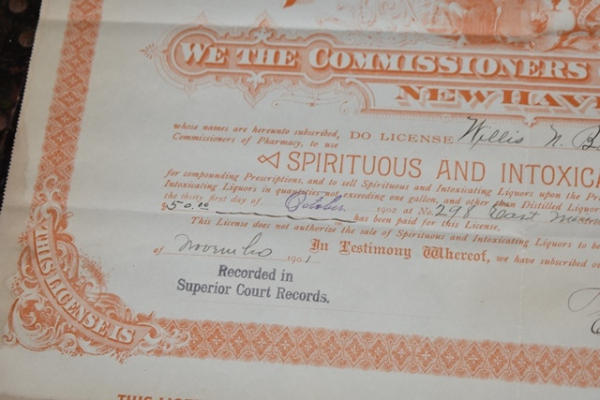 WE THE COMMISSIONERS
NEW HAV
whose names are hereunto subscribed,
Commissioners of Pharmacy, to use
DO LICENSE Willis N. B
SPIRITUOUS AND INTOXICA
for compounding Prescriptions, and to sell Spirituous and Intoxicating Liquors upon the Pr
Intoxicating Liquors in quantities not exceeding one gallon, and other than Distilled Liquor
the thirty first day of October 1902 at No. 298 East
$50.00 has been paid for this License.
This License does not authorise the sale of Spirituous and Intoxicating Liquors to be
of 1901 In Testimony Whereof, we have subscribed o
Recorded in
Superior Court Records.
THIS LICENSE IS
THIS LICE